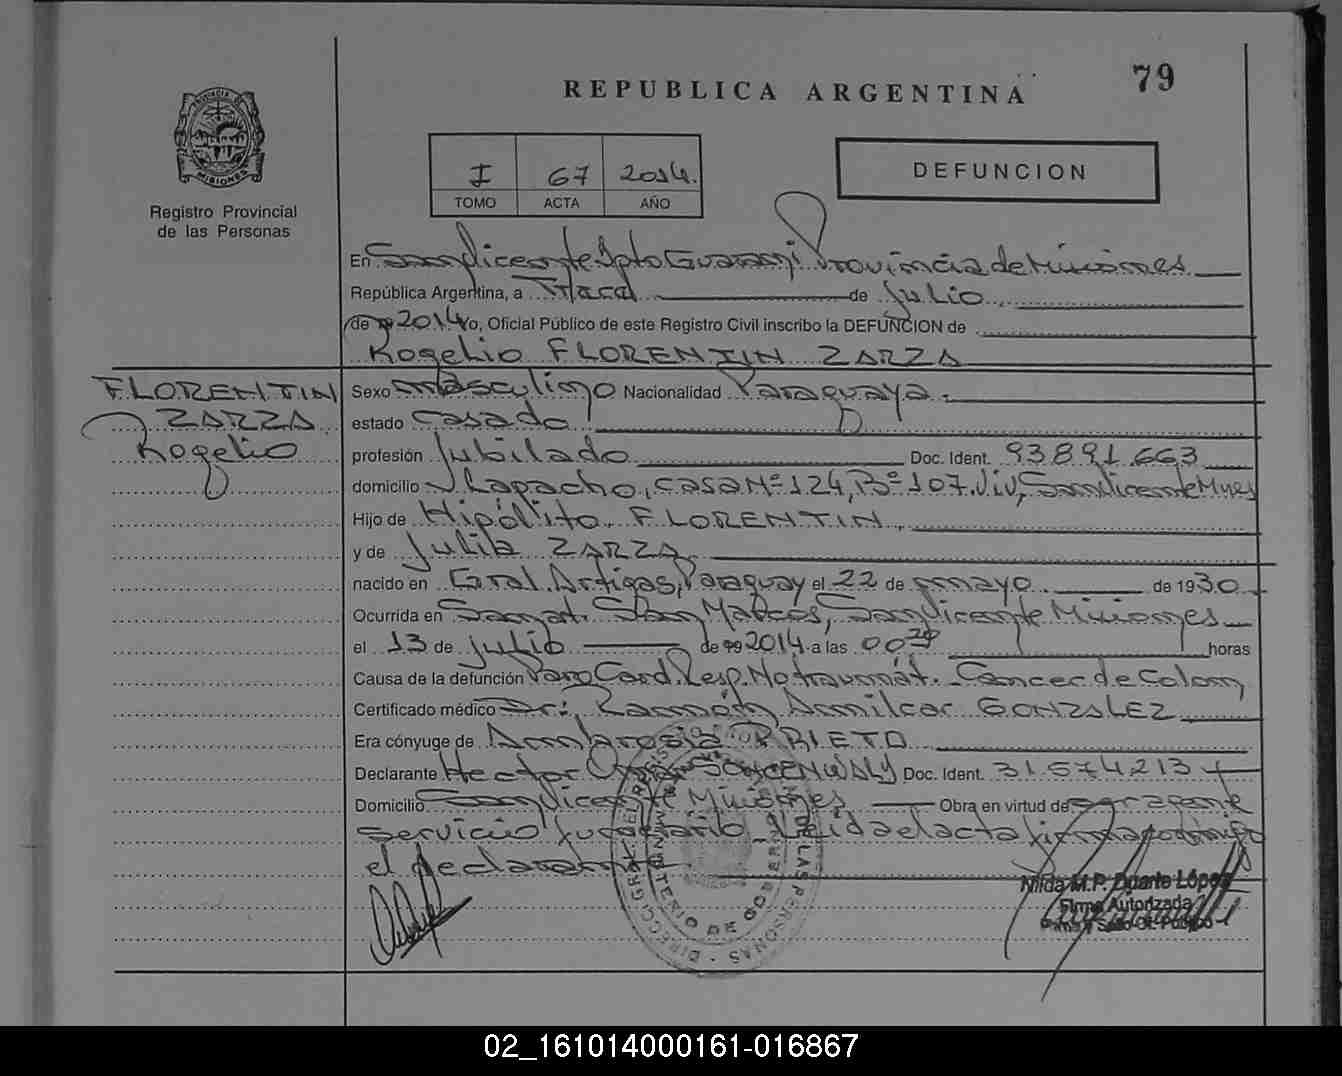 79
REPUBLICA ARGENTINA
PROVINCIA DE
MISIONES
Registro Provincial
de las Personas
I 67 2014.
TOMO ACTA AÑO
DEFUNCION
En San Vicente Dpto Guarani Provincia de Misiones
República Argentina, a Trece de Julio
de 19 2014 Yo, Oficial Público de este Registro Civil inscribo la DEFUNCION de
Rogelio FLORENTIN ZARZA
FLORENTIN
ZARZA
Rogelio
Sexo masculino Nacionalidad Paraguaya.
estado casado
profesión Jubilado Doc. Ident. 93891.663
domicilio Lapacho, casa Nº 124, Bº 107 Viv, San Vicente Mnes
Hijo de Hipólito FLORENTIN
y de Julia ZARZA
nacido en Gral. Artigas, Paraguay el 22 de mayo de 1930
Ocurrida en Sanat. San Marcos, San Vicente Misiones
el 13 de julio de 19 2014 a las 00 horas
Causa de la defunción Paro Card. Resp. No traumát. Cancer de Colon
Certificado médico Dr: Ramón Amilcar GONZALEZ
Era cónyuge de Ambrosia PRIETO
Declarante Hector Doc. Ident. 31574213
Domicilio San Vicente Misiones Obra en virtud de
servicio Leida el acta firma conmigo
el declarante
Nilda M.P. Duarte López
Firma Autorizada
Firma y Sello Of. Público
02_161014000161-016867